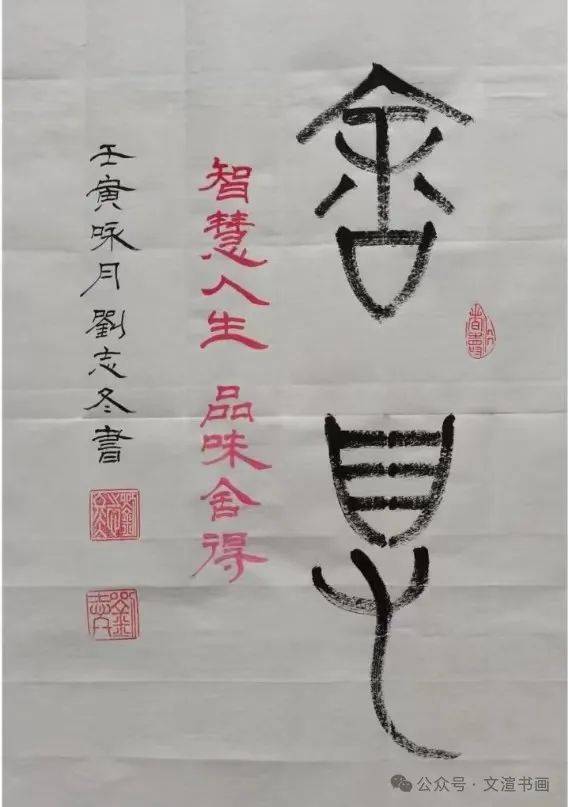 舍得
智慧人生 品味舍得
壬寅咏月劉志冬書
公众号 · 文渲书画